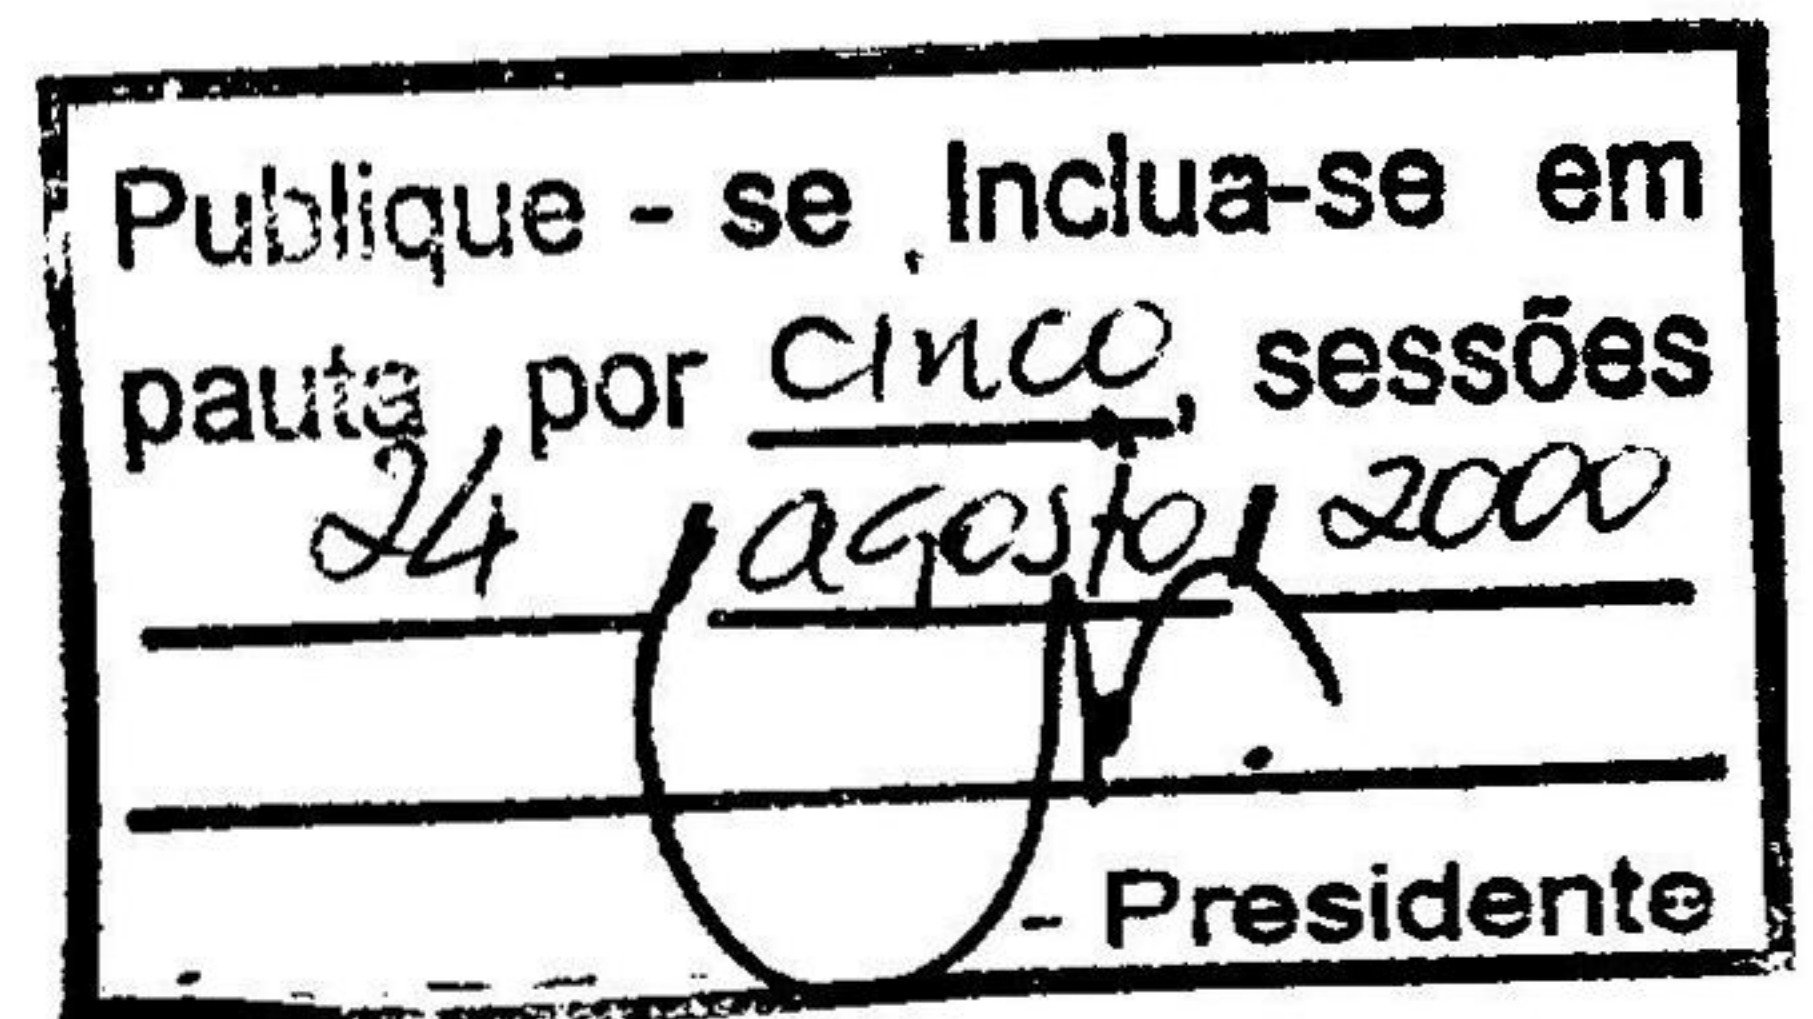 Publique - se . Inclua-se em
pauta por cinco, sessões
24 / agosto / 2000
- Presidente